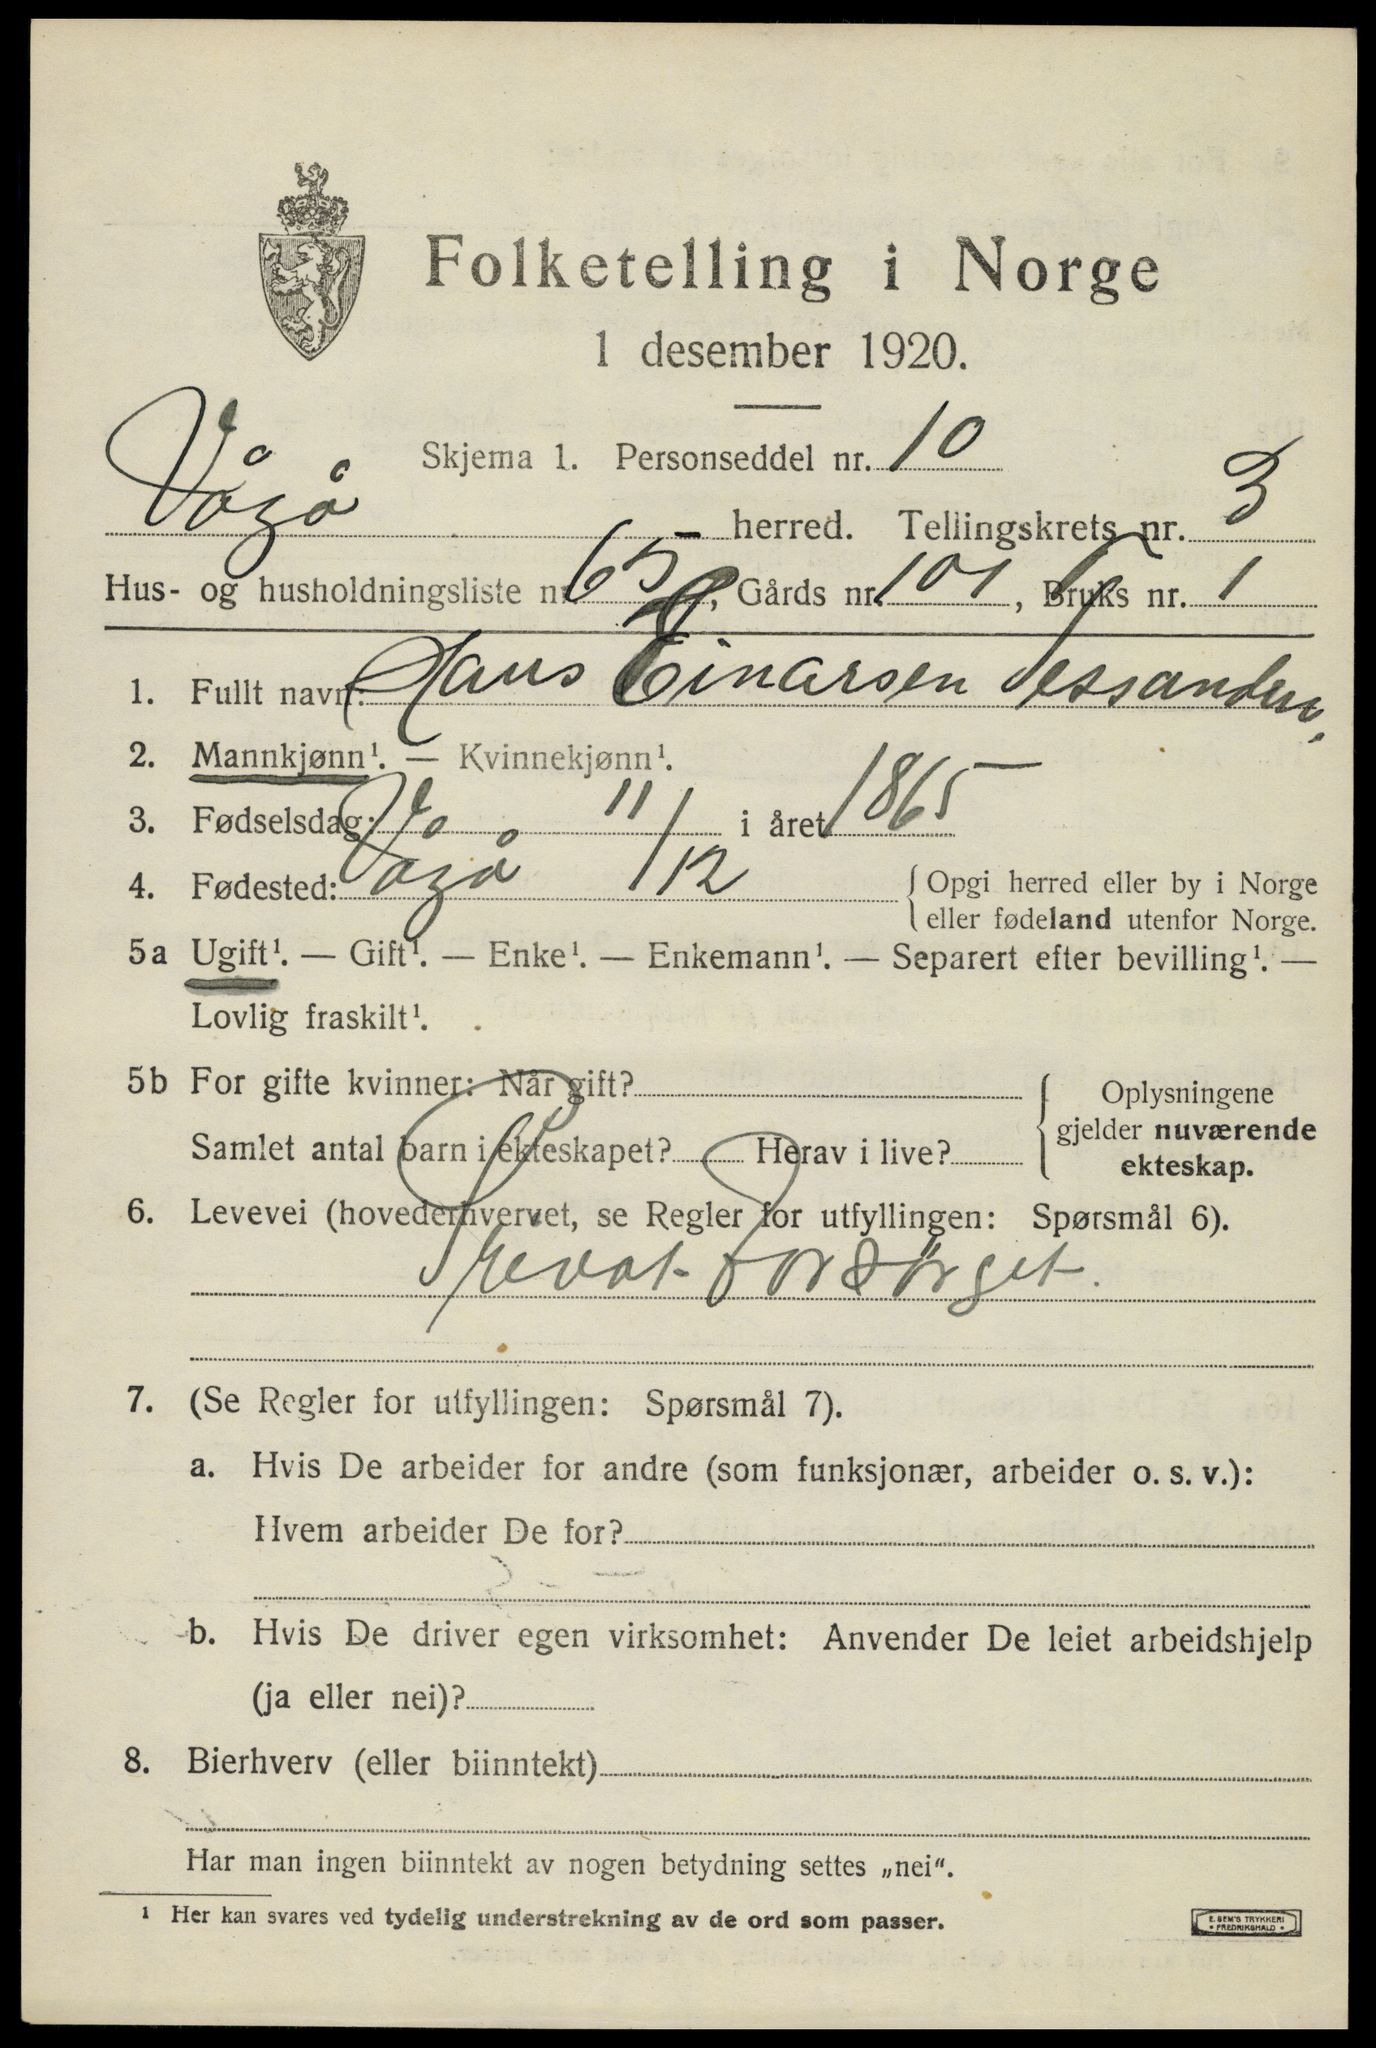 Folketelling i Norge
1 desember 1920.
Skjema 1. Personseddel nr. 10
Vågå herred. Tellingskrets nr. 3
Hus- og husholdningsliste nr. 65, Gårds nr. 101, Bruks nr. 1
1. Fullt navn: Hans Einarsen Tessanden,
2. Mannkjønn¹. — Kvinnekjønn¹.
3. Fødselsdag: 11/12 i året 1865
4. Fødested: Vågå { Opgi herred eller by i Norge
eller fødeland utenfor Norge.
5a Ugift¹. — Gift¹. — Enke¹. — Enkemann¹. — Separert efter bevilling¹. —
Lovlig fraskilt¹.
5b For gifte kvinner: Når gift? { Oplysningene
gjelder nuværende
ekteskap.
Samlet antal barn i ekteskapet? Herav i live?
6. Levevei (hovederhvervet, se Regler for utfyllingen: Spørsmål 6).
Prevat Forsørget.
7. (Se Regler for utfyllingen: Spørsmål 7).
a. Hvis De arbeider for andre (som funksjonær, arbeider o. s. v.):
Hvem arbeider De for?
b. Hvis De driver egen virksomhet: Anvender De leiet arbeidshjelp
(ja eller nei)?
8. Bierhverv (eller biinntekt)
Har man ingen biinntekt av nogen betydning settes „nei“.
¹ Her kan svares ved tydelig understrekning av de ord som passer.
E. SEM'S TRYKKERI
• FREDRIKSHALD •